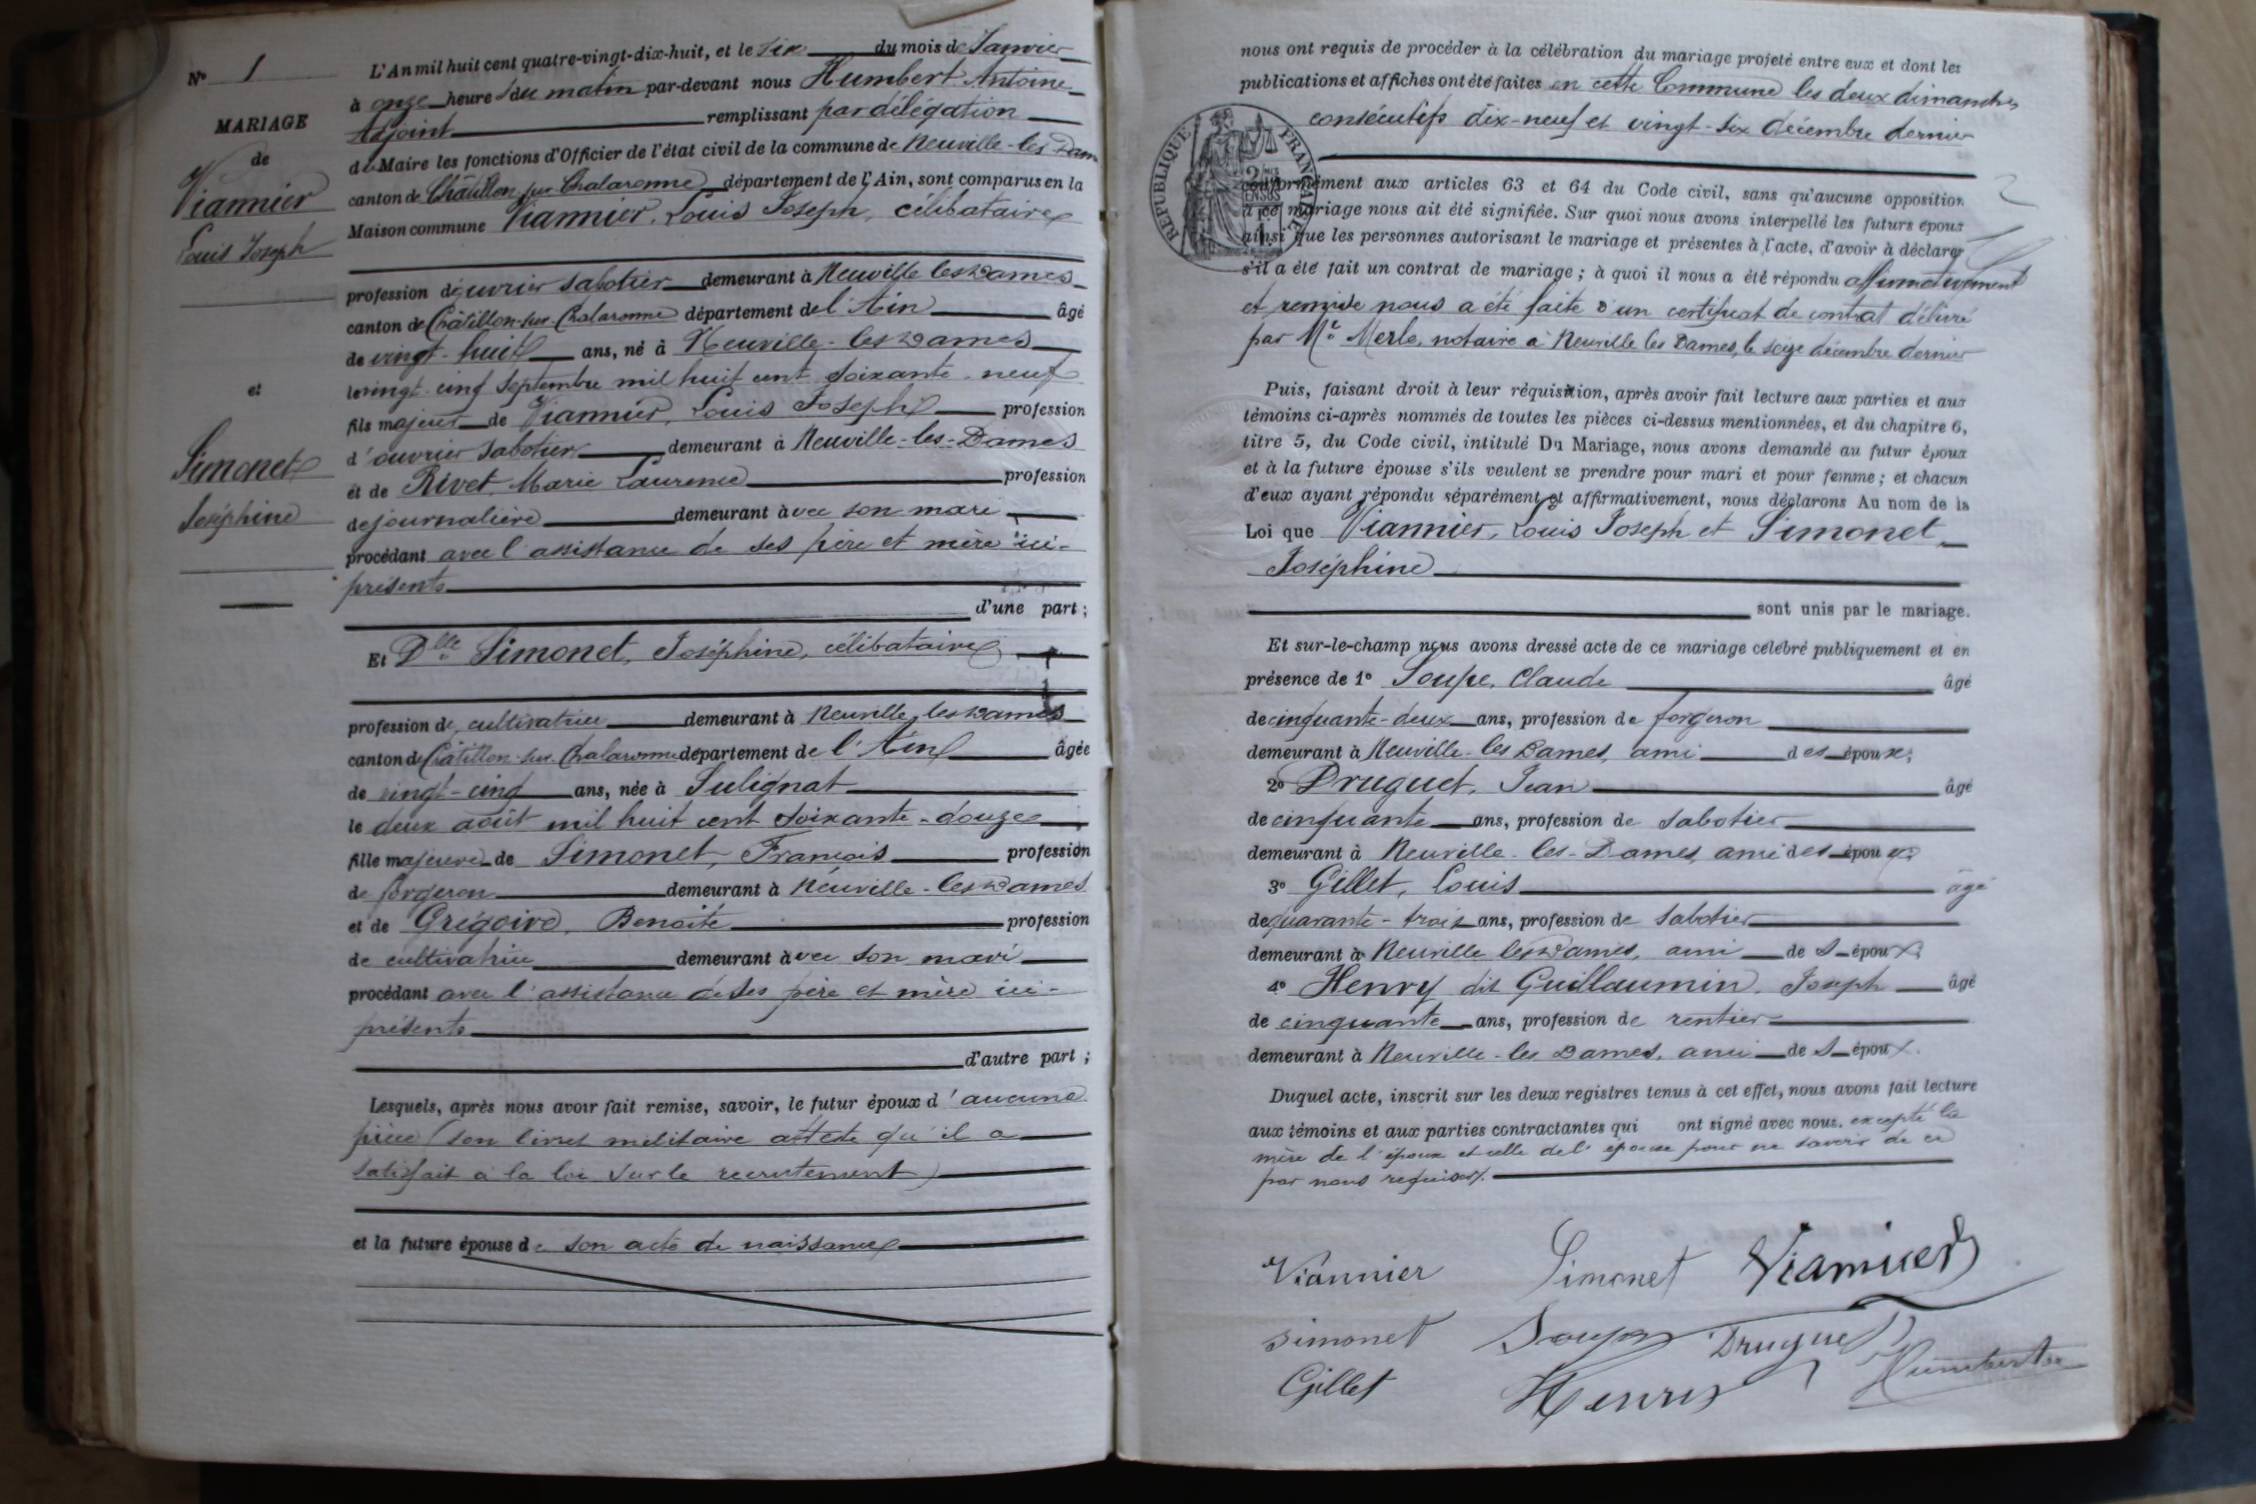 N° 1
MARIAGE
de
Viannier
Louis Joseph
et
Simonet
Joséphine
L'An mil huit cent quatre-vingt-dix-huit, et le six du mois de Janvier
à onze heure du matin par-devant nous Humbert Antoine
Adjoint remplissant par délégation
du Maire les fonctions d'Officier de l'état civil de la commune de Neuville-les-Dames
canton de Châtillon-sur-Chalaronne département de l'Ain, sont comparus en la
Maison commune Viannier, Louis Joseph, célibataire
profession d'ouvrier sabotier demeurant à Neuville les Dames
canton de Châtillon-sur-Chalaronne département de l'Ain âgé
de vingt-huit ans, né à Neuville-les Dames
le vingt-cinq Septembre mil huit cent soixante-neuf
fils majeur de Viannier, Louis Joseph profession
d'ouvrier sabotier demeurant à Neuville-les-Dames
et de Rivet, Marie Laurence profession
de journalière demeurant avec son mari
procédant avec l'assistance de ses père et mère ici-
présents
d'une part ;
Et Dlle Simonet, Joséphine, célibataire
profession de cultivatrice demeurant à Neuville les Dames
canton de Châtillon-sur-Chalaronne département de l'Ain âgée
de vingt-cinq ans, née à Sulignat
le deux août mil huit cent soixante-douze
fille majeure de Simonet, François profession
de forgeron demeurant à Neuville-les Dames
et de Grégoire, Benoite profession
de cultivatrice demeurant avec son mari
procédant avec l'assistance de ses père et mère ici-
présents
d'autre part ;
Lesquels, après nous avoir fait remise, savoir, le futur époux d'aucune
pièce (son livret militaire atteste qu'il a
satisfait à la loi sur le recrutement)
et la future épouse de son acte de naissance
nous ont requis de procéder à la célébration du mariage projeté entre eux et dont les
publications et affiches ont été faites en cette Commune les deux dimanches
consécutifs dix-neuf et vingt-six décembre dernier
RÉPUBLIQUE FRANÇAISE
conformément aux articles 63 et 64 du Code civil, sans qu'aucune opposition
à ce mariage nous ait été signifiée. Sur quoi nous avons interpellé les futurs époux
ainsi que les personnes autorisant le mariage et présentes à l'acte, d'avoir à déclarer
s'il a été fait un contrat de mariage ; à quoi il nous a été répondu affirmativement
et remise nous a été faite d'un certificat de contrat délivré
par Me Merle, notaire à Neuville les Dames, le seize décembre dernier
Puis, faisant droit à leur réquisition, après avoir fait lecture aux parties et aux
témoins ci-après nommés de toutes les pièces ci-dessus mentionnées, et du chapitre 6,
titre 5, du Code civil, intitulé Du Mariage, nous avons demandé au futur époux
et à la future épouse s'ils veulent se prendre pour mari et pour femme ; et chacun
d'eux ayant répondu séparément et affirmativement, nous déclarons Au nom de la
Loi que Viannier, Louis Joseph et Simonet
Joséphine
sont unis par le mariage.
Et sur-le-champ nous avons dressé acte de ce mariage célébré publiquement et en
présence de 1° Soupe, Claude âgé
de cinquante-deux ans, profession de forgeron
demeurant à Neuville-les Dames, ami des époux ;
2° Druguet, Jean âgé
de cinquante ans, profession de sabotier
demeurant à Neuville-les-Dames, ami des époux ;
3° Gillet, Louis âgé
de quarante-trois ans, profession de sabotier
demeurant à Neuville les Dames, ami des époux ;
4° Henry dit Guillaumin, Joseph âgé
de cinquante ans, profession de rentier
demeurant à Neuville-les Dames, ami des époux.
Duquel acte, inscrit sur les deux registres tenus à cet effet, nous avons fait lecture
aux témoins et aux parties contractantes qui ont signé avec nous, excepté la
mère de l'époux et celle de l'épouse pour ne savoir de ce
par nous requises.
Viannier Simonet Viannier
Simonet Soupe Druguet
Gillet Henry Humbert